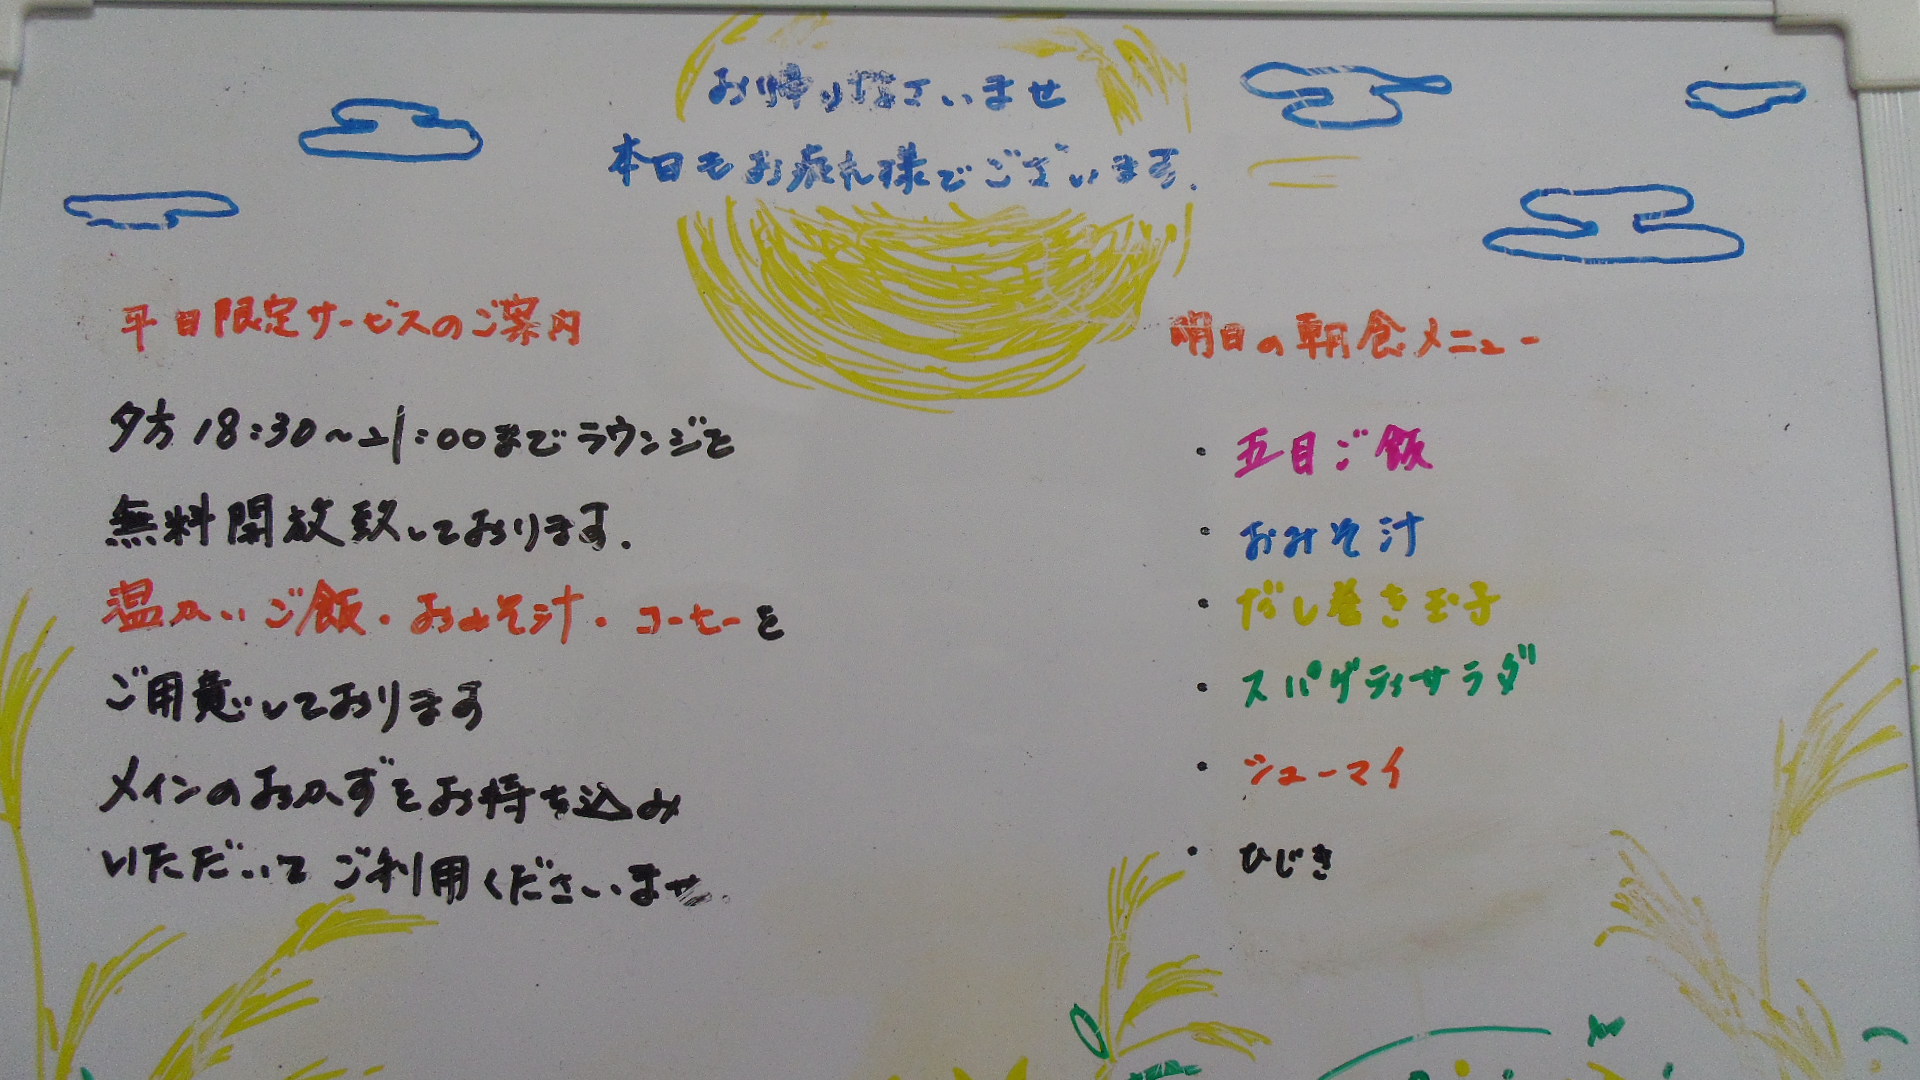 お帰りなさいませ
本日もお疲れ様でございます.
平日限定サービスのご案内
夕方18:30～21:00までラウンジを
無料開放致しております.
温かいご飯・おみそ汁・コーヒーを
ご用意しております
メインのおかずをお持ち込み
いただいてご利用くださいませ.
明日の朝食メニュー
・五目ご飯
・おみそ汁
・だし巻き玉子
・スパゲティサラダ
・シューマイ
・ひじき